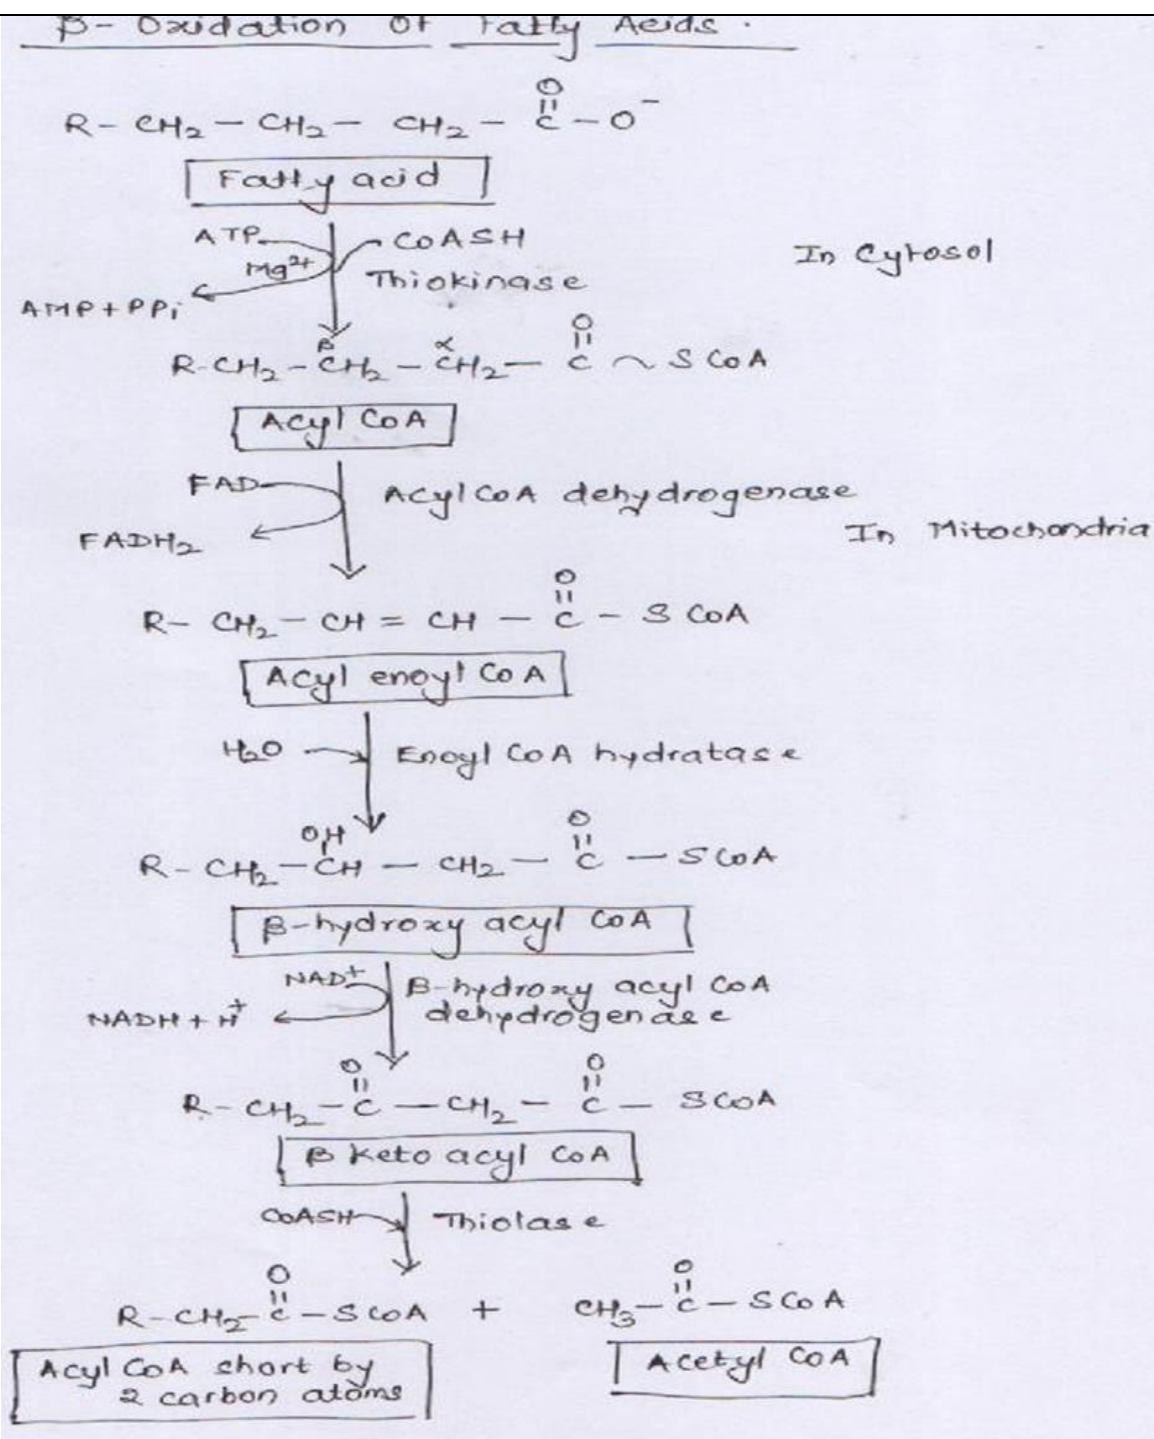 β- Oxidation Of Fatty Acids.
R- CH₂ – CH₂ – CH₂ – C – O⁻
O
Fatty acid
ATP CoASH
Mg²⁺ Thiokinase
In Cytosol
AMP + PPi
R-CH₂ – CH₂ – CH₂ – C ~ SCoA
β α O
Acyl CoA
FAD Acyl CoA dehydrogenase
FADH₂
In Mitochondria
O
R- CH₂ – CH = CH – C – SCoA
Acyl enoyl CoA
H₂O Enoyl CoA hydratase
OH O
R- CH₂ – CH – CH₂ – C – SCoA
β-hydroxy acyl CoA
NAD⁺ β-hydroxy acyl CoA
NADH + H⁺ dehydrogenase
O O
R- CH₂ – C – CH₂ – C – SCoA
β Keto acyl CoA
CoASH Thiolase
O O
R-CH₂-C-SCoA + CH₃-C-SCoA
Acyl CoA short by
2 carbon atoms
Acetyl CoA